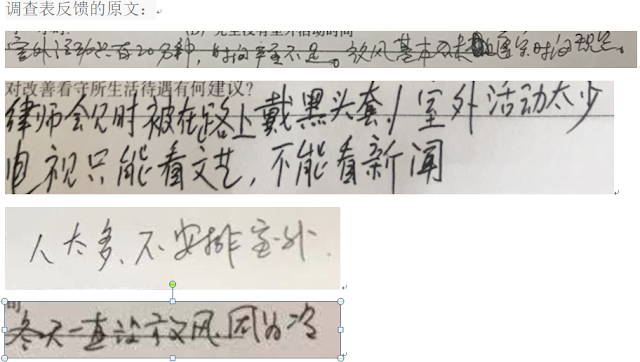 调查表反馈的原文：
室外活动只有20分钟，时间严重不足。放风基本
对改善看守所生活待遇有何建议？
律师会见时被在路上戴黑头套/室外活动太少
电视只能看文艺，不能看新闻
人太多、不安排室外.
冬天一直没有放风，因为冷